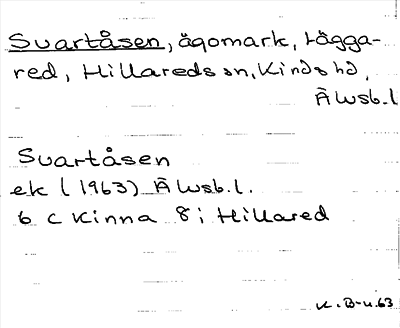 Svartåsen, ägomark, Hägga-
red, Hillareds sn, Kinds hd,
Älvsb.l
Svartåsen
ek (1963) Älvsb.l.
6 C Kinna 8 i Hillared
K.B-n.63